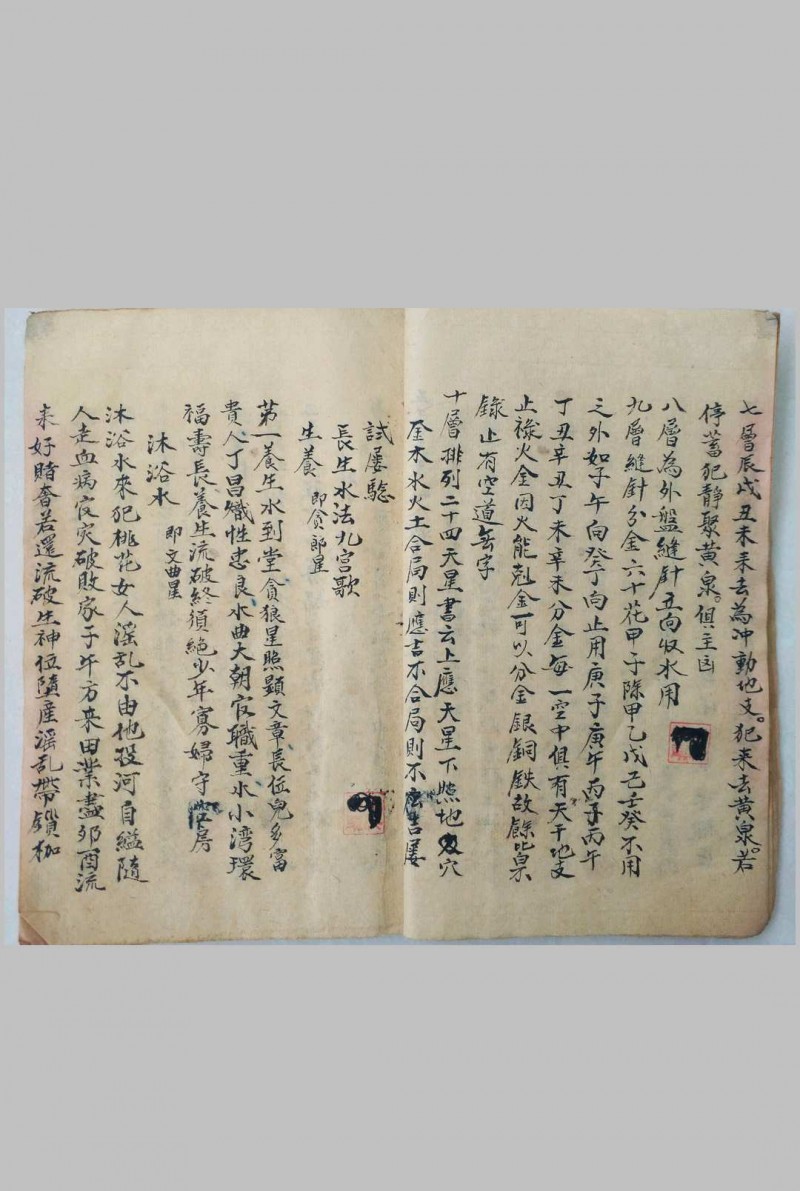 七層辰戌丑未来去為冲動地支。犯来去黄泉。若
停蓄犯静聚黄泉。俱主凶
八層為外盤縫針丑向收水用
九層縫針分金六十花甲子除甲乙戊己壬癸不用
之外如子午向癸丁向止用庚子庚午丙子丙午
丁丑辛丑丁未辛未分金每一空中俱有天干地支
止禄火金因火能剋金可以分金銀銅鉄故餘皆不
錄止有空道無字
十層排列二十四天星書云上應天星下照地穴
金木水火土合局則應吉不合局則不應吉屡
試屡驗
長生水法九宫歌
生養 即贪郎星
第一養生水到堂贪狼星照顯文章長位兒多富
貴人丁昌熾性忠良水曲大朝官職重水小湾環
福壽長養生流破終須絶少年寡婦守空房
沐浴水 即文曲星
沐浴水來犯桃花女人淫乱不由他投河自縊隨
人走血病官灾破敗家子午方来田業盡卯酉流
来好賭奢若還流破生神位隨産淫乱帶鎖枷